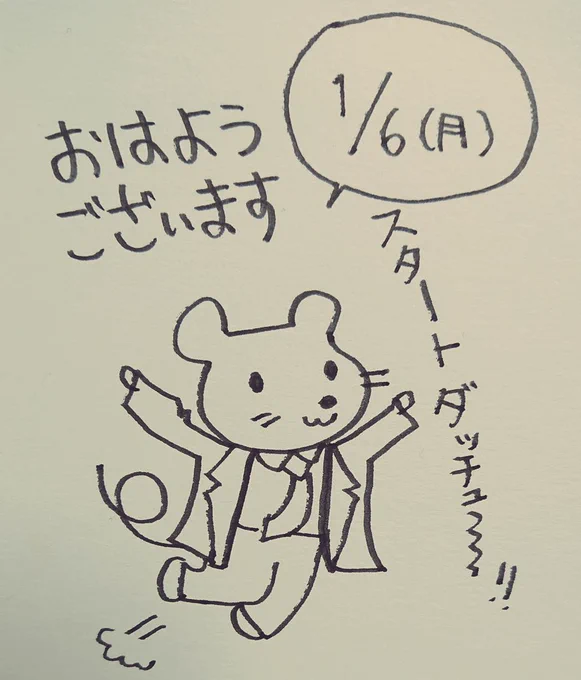 おはよう
ございます
1/6(月)
スタートダッチュ〜〜!!